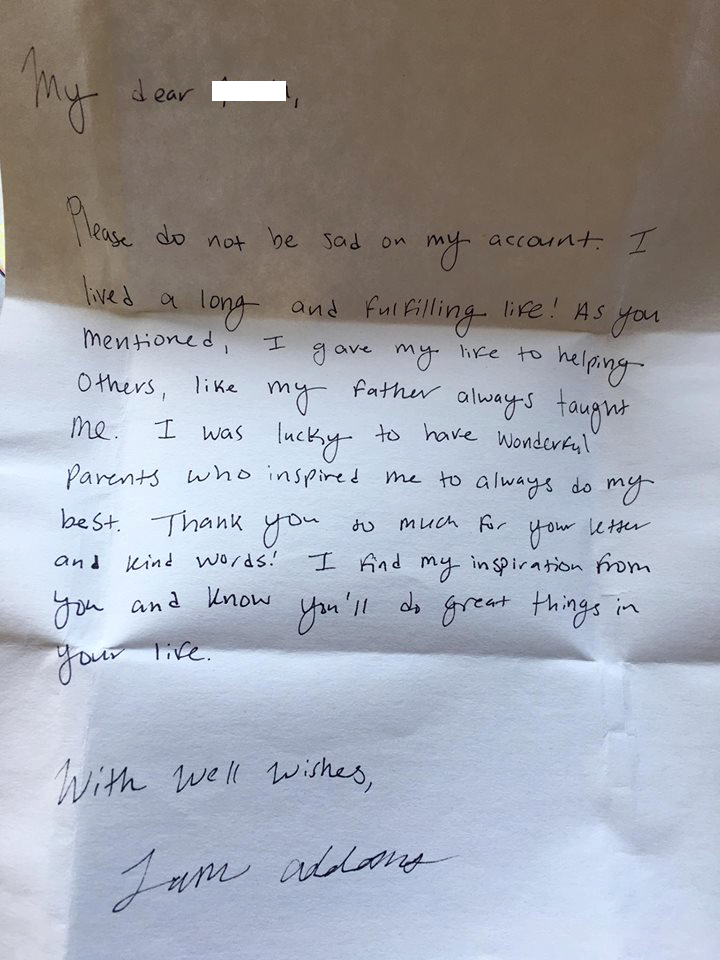 My dear
Please do not be sad on my account. I
lived a long and fulfilling life! As you
mentioned, I gave my life to helping
others, like my father always taught
me. I was lucky to have wonderful
parents who inspired me to always do my
best. Thank you so much for your letter
and kind words! I find my inspiration from
you and know you'll do great things in
your life.
With well wishes,
Addams